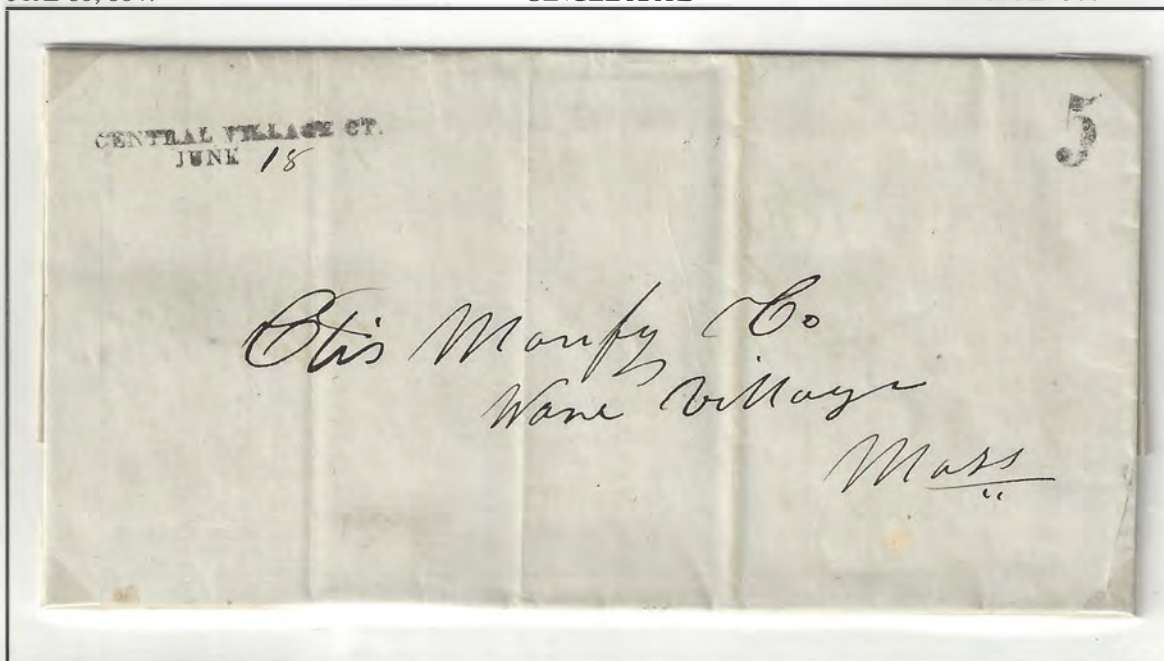 CENTRAL VILLAGE CT.
JUNE 18
5
Otis Manfy Co
Ware Village
Mass